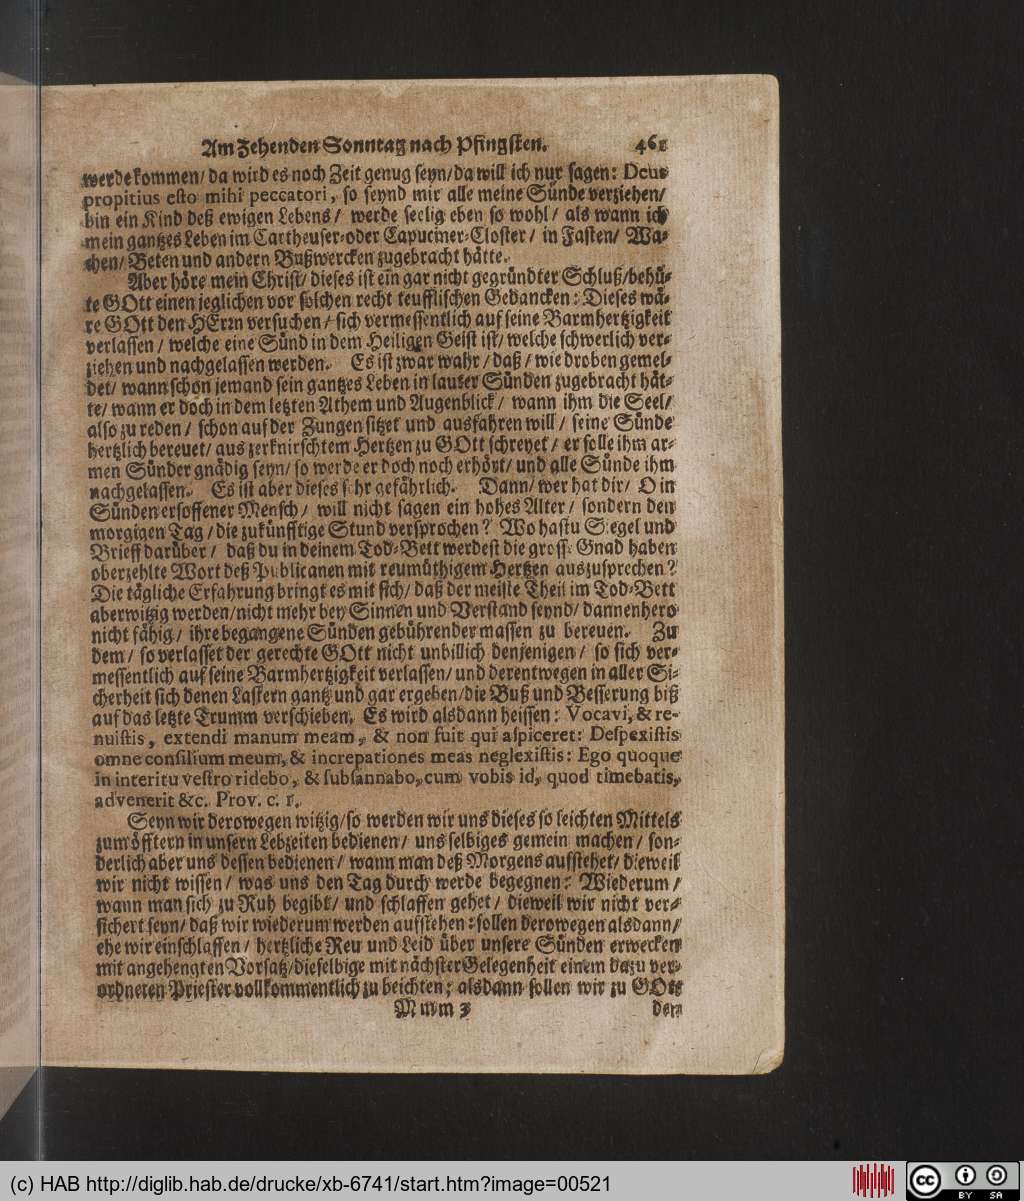 Am Zehenden Sonntag nach Pfingsten. 461
werde kommen/ da wird es noch Zeit genug seyn/ da will ich nur sagen: Deus
propitius esto mihi peccatori, so seynd mir alle meine Sünde verziehen/
bin ein Kind deß ewigen Lebens/ werde seelig eben so wohl/ als wann ich
mein gantzes Leben im Cartheuser- oder Capuciner-Closter/ in Fasten/ Wa-
chen/ Beten und andern Bußwercken zugebracht hätte.
Aber höre mein Christ/ dieses ist ein gar nicht gegründter Schluß/ behü-
te GOtt einen jeglichen vor solchen recht teufflischen Gedancken: Dieses wä-
re GOtt den HErrn versuchen/ sich vermessentlich auf seine Barmhertzigkeit
verlassen/ welche eine Sünd in dem Heiligen Geist ist/ welche schwerlich ver-
ziehen und nachgelassen werden. Es ist zwar wahr/ daß/ wie droben gemel-
det/ wann schon jemand sein gantzes Leben in lauter Sünden zugebracht hät-
te/ wann er doch in dem letzten Athem und Augenblick/ wann ihm die Seel/
also zu reden/ schon auf der Zungen sitzet und ausfahren will/ seine Sünde
hertzlich bereuet/ aus zerknirschtem Hertzen zu GOtt schreyet/ er solle ihm ar-
men Sünder gnädig seyn/ so werde er doch noch erhört/ und alle Sünde ihm
nachgelassen. Es ist aber dieses sehr gefährlich. Dann/ wer hat dir/ O in
Sünden ersoffener Mensch/ will nicht sagen ein hohes Alter/ sondern den
morgigen Tag/ die zukünfftige Stund versprochen? Wo hastu Siegel und
Brieff darüber/ daß du in deinem Tod-Bett werdest die grosse Gnad haben
oberzehlte Wort deß Publicanen mit reumüthigem Hertzen auszusprechen?
Die tägliche Erfahrung bringt es mit sich/ daß der meiste Theil im Tod-Bett
aberwitzig werden/ nicht mehr bey Sinnen und Verstand seynd/ dannenhero
nicht fähig/ ihre begangene Sünden gebührender massen zu bereuen. Zu
dem/ so verlasset der gerechte GOtt nicht unbillich denjenigen/ so sich ver-
messentlich auf seine Barmhertzigkeit verlassen/ und derentwegen in aller Si-
cherheit sich denen Lastern gantz und gar ergeben/ die Buß und Besserung biß
auf das letzte Trumm verschieben. Es wird alsdann heissen: Vocavi, & re-
nuistis, extendi manum meam, & non fuit qui aspiceret: Despexistis
omne consilium meum, & increpationes meas neglexistis: Ego quoque
in interitu vestro ridebo, & subsannabo, cum vobis id, quod timebatis,
advenerit &c. Prov. c. 1.
Seyn wir derowegen witzig/ so werden wir uns dieses so leichten Mittels
zum öfftern in unsern Lebzeiten bedienen/ uns selbiges gemein machen/ son-
derlich aber uns dessen bedienen/ wann man deß Morgens aufstehet/ dieweil
wir nicht wissen/ was uns den Tag durch werde begegnen: Wiederum/
wann man sich zu Ruh begibt/ und schlaffen gehet/ dieweil wir nicht ver-
sichert seyn/ daß wir wiederum werden aufstehen: sollen derowegen alsdann/
ehe wir einschlaffen/ hertzliche Reu und Leid über unsere Sünden erwecken
mit angehengten Vorsatz/ dieselbige mit nächster Gelegenheit einem dazu ver-
ordneten Priester vollkommentlich zu beichten; alsdann sollen wir zu GOtt
Mmm 3 dem
(c) HAB http://diglib.hab.de/drucke/xb-6741/start.htm?image=00521
cc BY SA